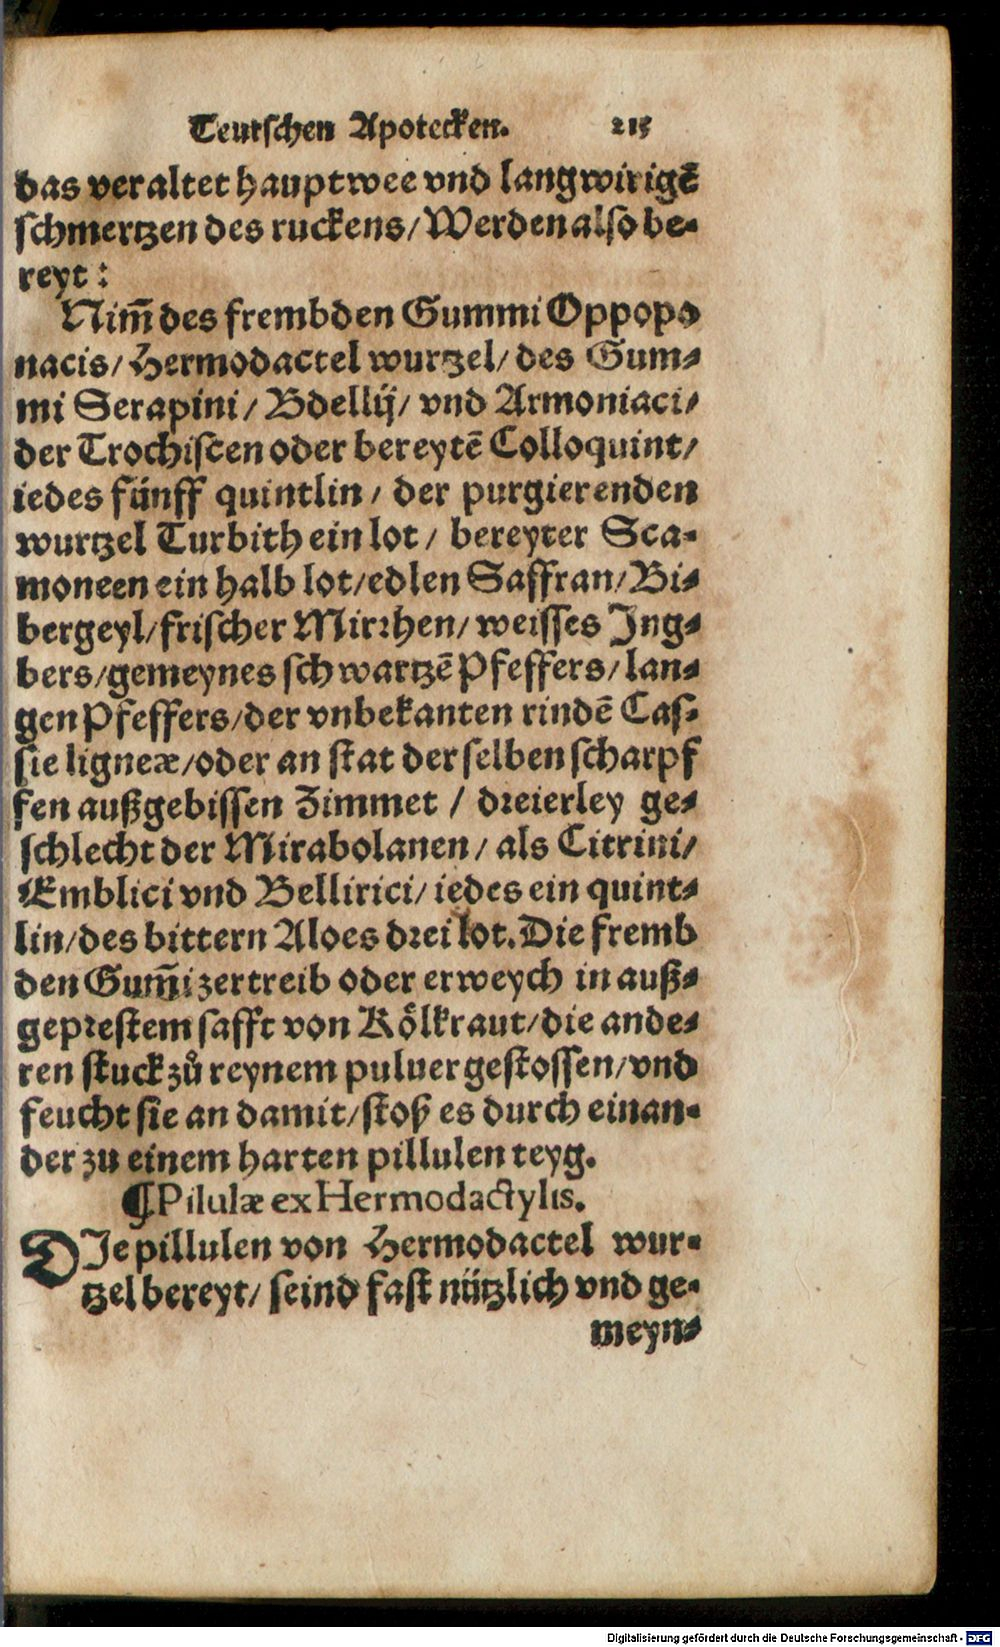 Teutschen Apotecken. 215
das veraltet hauptwee vnd langwirigē
schmertzen des ruckens/ Werden also be-
reyt:
Nim̄ des frembden Gummi Oppopo
nacis/ Hermodactel wurtzel/ des Gum-
mi Serapini/ Bdellij/ vnd Armoniaci/
der Trochiscen oder bereytē Colloquint/
iedes fünff quintlin/ der purgierenden
wurtzel Turbith ein lot/ bereyter Sca-
moneen ein halb lot/ edlen Saffran/ Bi-
bergeyl/ frischer Mirrhen/ weisses Jng-
bers/ gemeynes schwartzē Pfeffers/ lan-
gen Pfeffers/ der vnbekanten rindē Cas-
sie ligneæ/ oder an stat der selben scharpf
fen außgebissen Zimmet / dreierley ge-
schlecht der Mirabolanen/ als Citrini/
Emblici vnd Bellirici/ iedes ein quint-
lin/ des bittern Aloes drei lot. Die fremb
den Gum̄i zertreib oder erweych in auß-
geprestem safft von Kölkraut/ die ande-
ren stuck zů reynem puluer gestossen/ vnd
feucht sie an damit/ stoß es durch einan-
der zu einem harten pillulen teyg.
¶ Pilulæ ex Hermodactylis.
DJe pillulen von Hermodactel wur-
tzel bereyt/ seind fast nützlich vnd ge-
meyn-
Digitalisierung gefördert durch die Deutsche Forschungsgemeinschaft - DFG